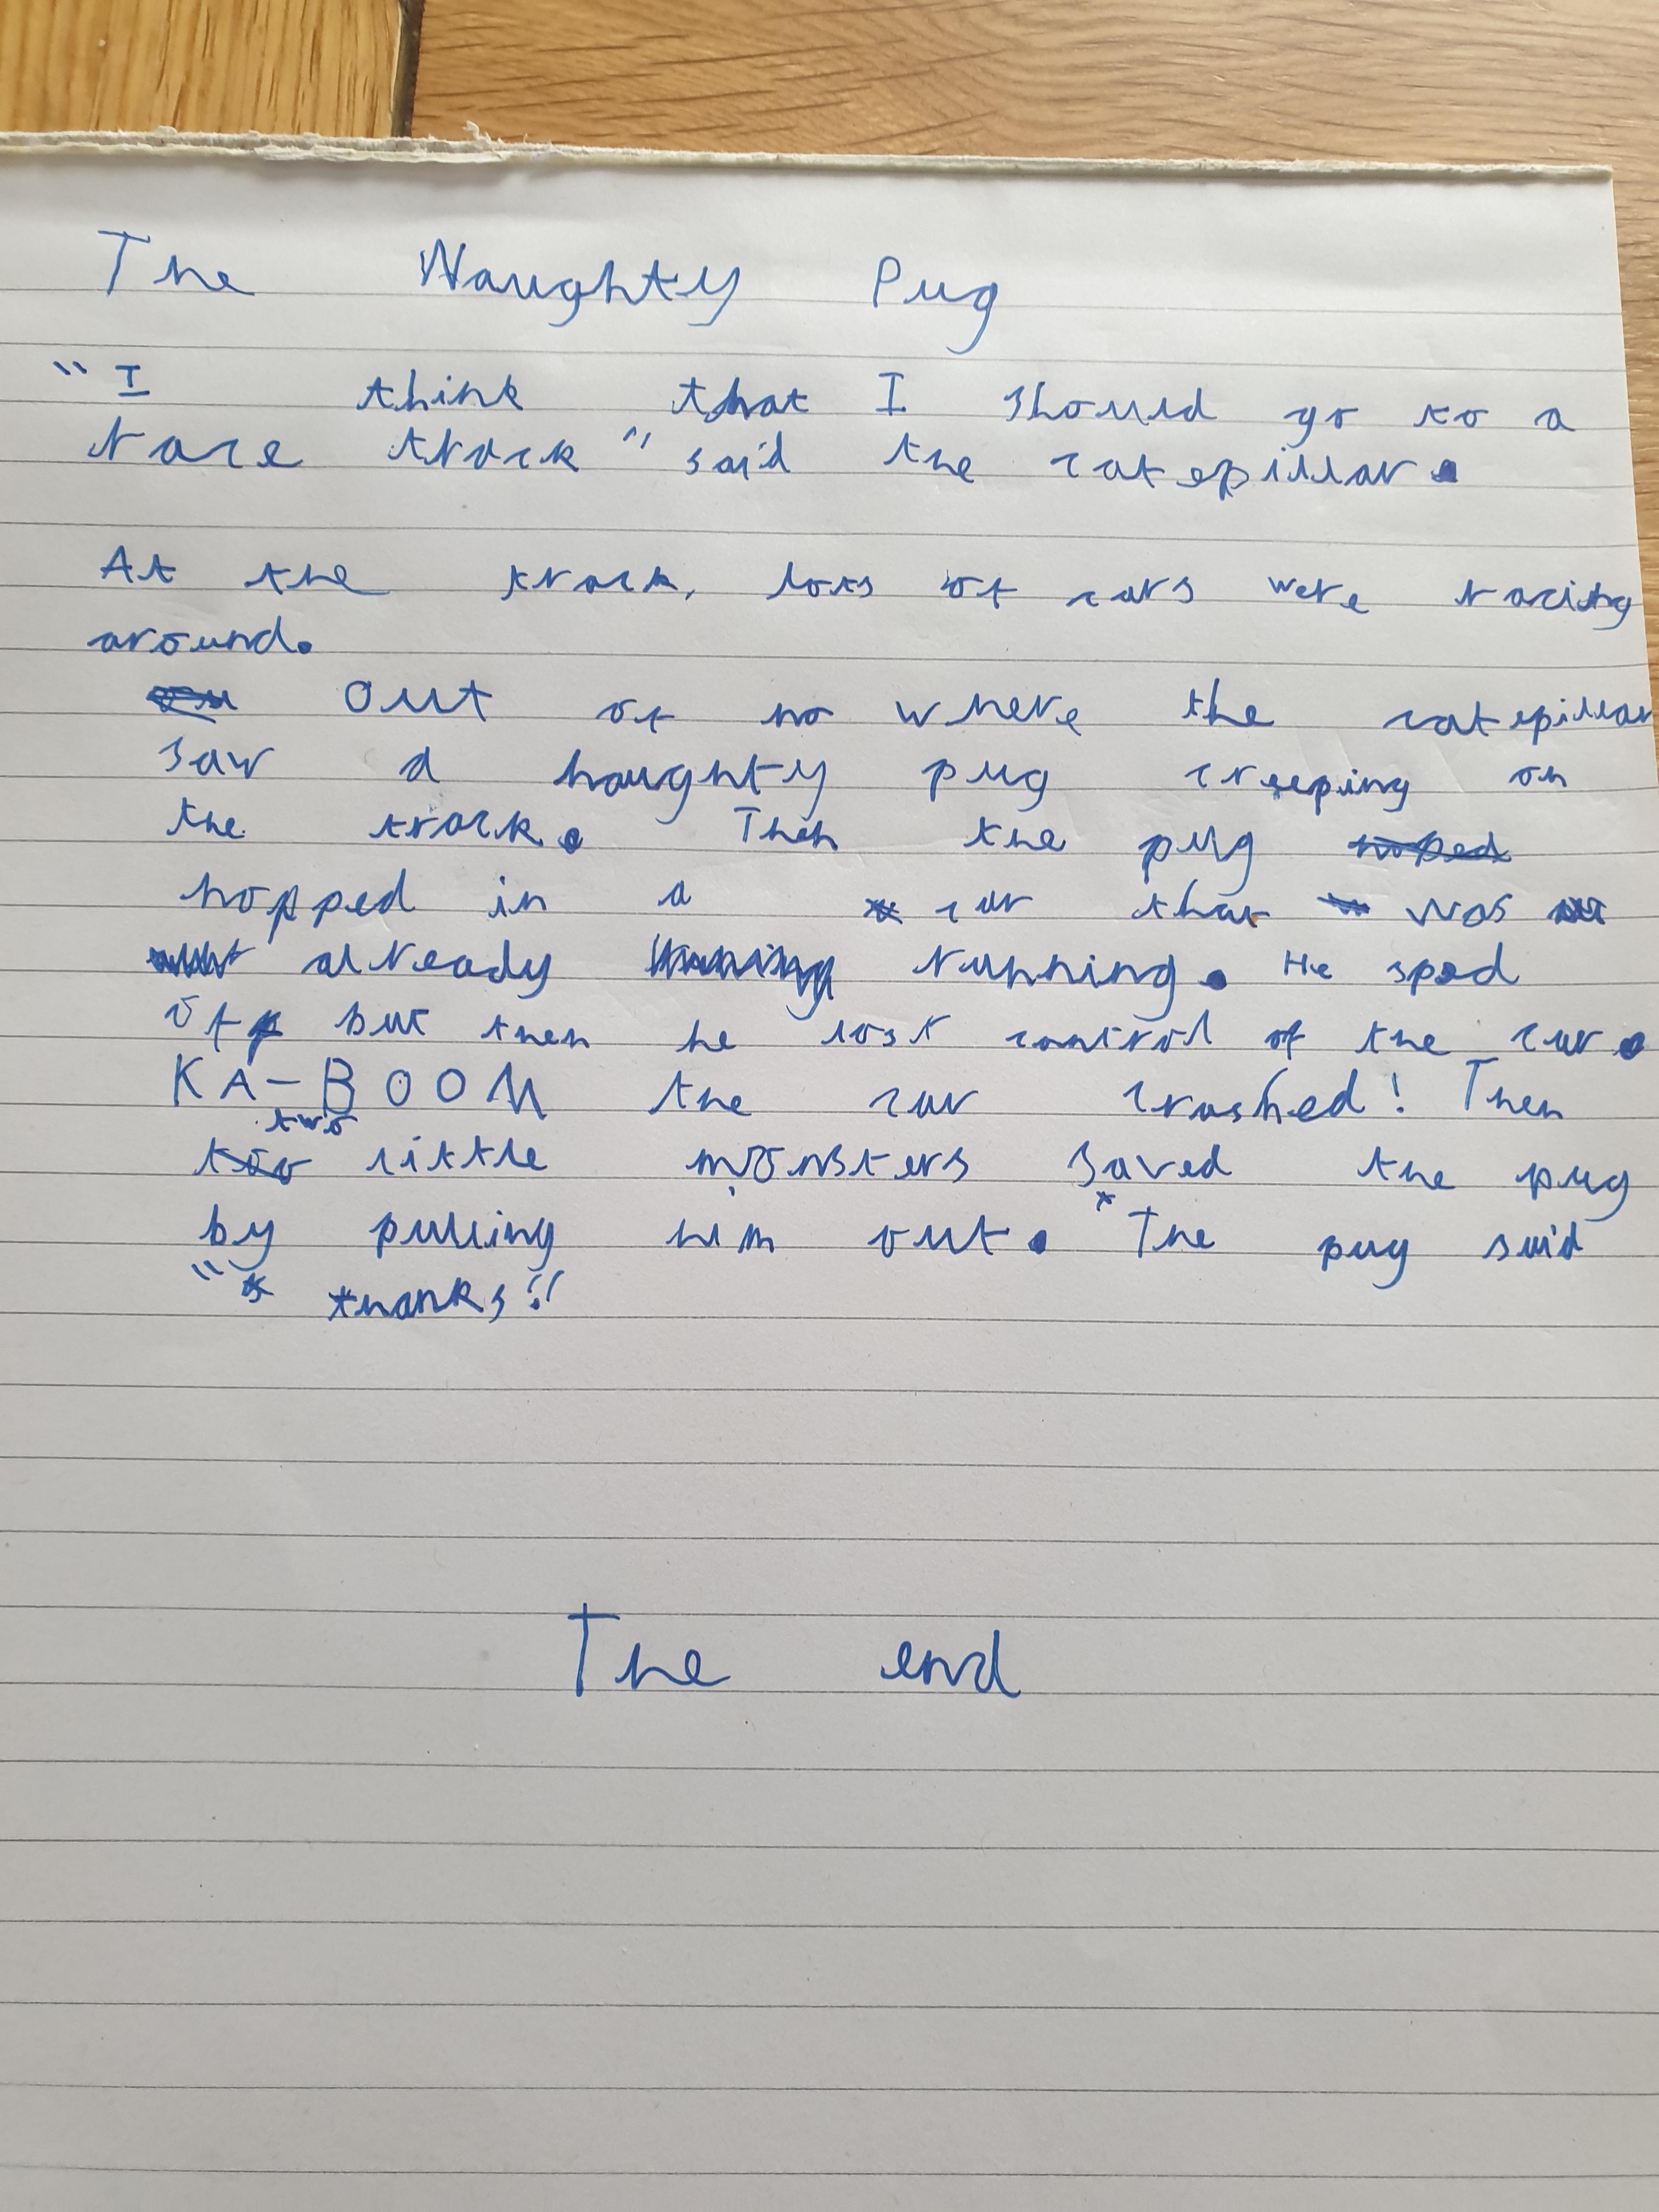 The Naughty Pug
"I think that I should go to a
race track" said the catepillar.
At the track, lots of cars were racing
around.
Out of no where the catepillar
saw a naughty pug creeping on
the track. Then the pug noped
hopped in a car that was
already running. He sped
off but then he lost control of the car.
KA-BOOM the car crashed! Then
two
too little monsters saved the pug
by pulling him out. The pug said
"thanks!"
The end